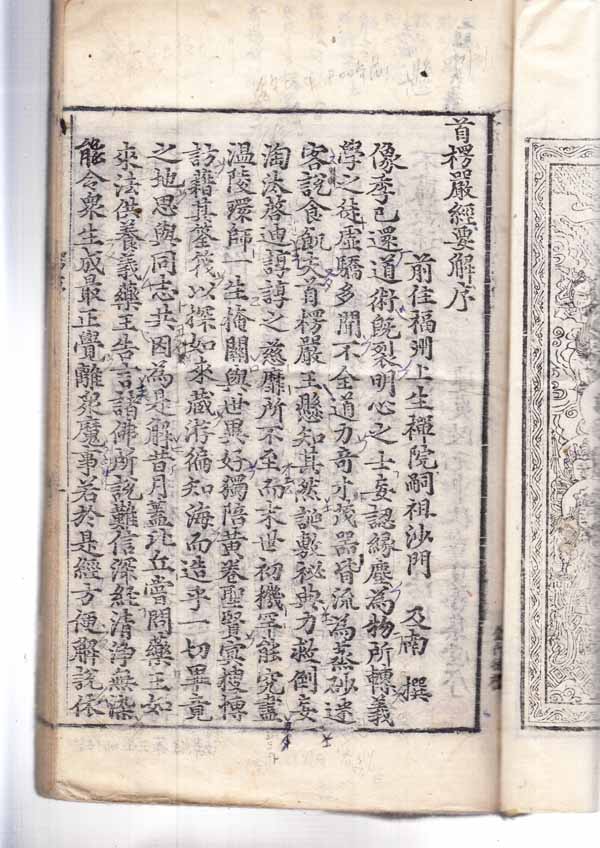 首楞嚴經要解序
前住福州上生禪院嗣祖沙門 及南 撰
像季已還道術既裂明心之士妄認緣塵為物所轉義
學之徒虛驕多聞不全道力奇才茂器皆流為蒸砂迷
客說食飢夫首楞嚴王懸知其然誕敷祕典力救倒妄
淘汰啓迪諄諄之慈靡所不至而末世初機罕能究盡
温陵環師一生掩關與世異好獨陪黃卷聖賢冥搜博
訪藉其筌筏以探如來藏游徧知海而造乎一切畢竟
之地思與同志共因為是解昔月蓋比丘嘗問藥王如
來法供養義藥王告言諸佛所說難信深經清淨無染
能令衆生成最正覺離衆魔事若於是經方便解說依